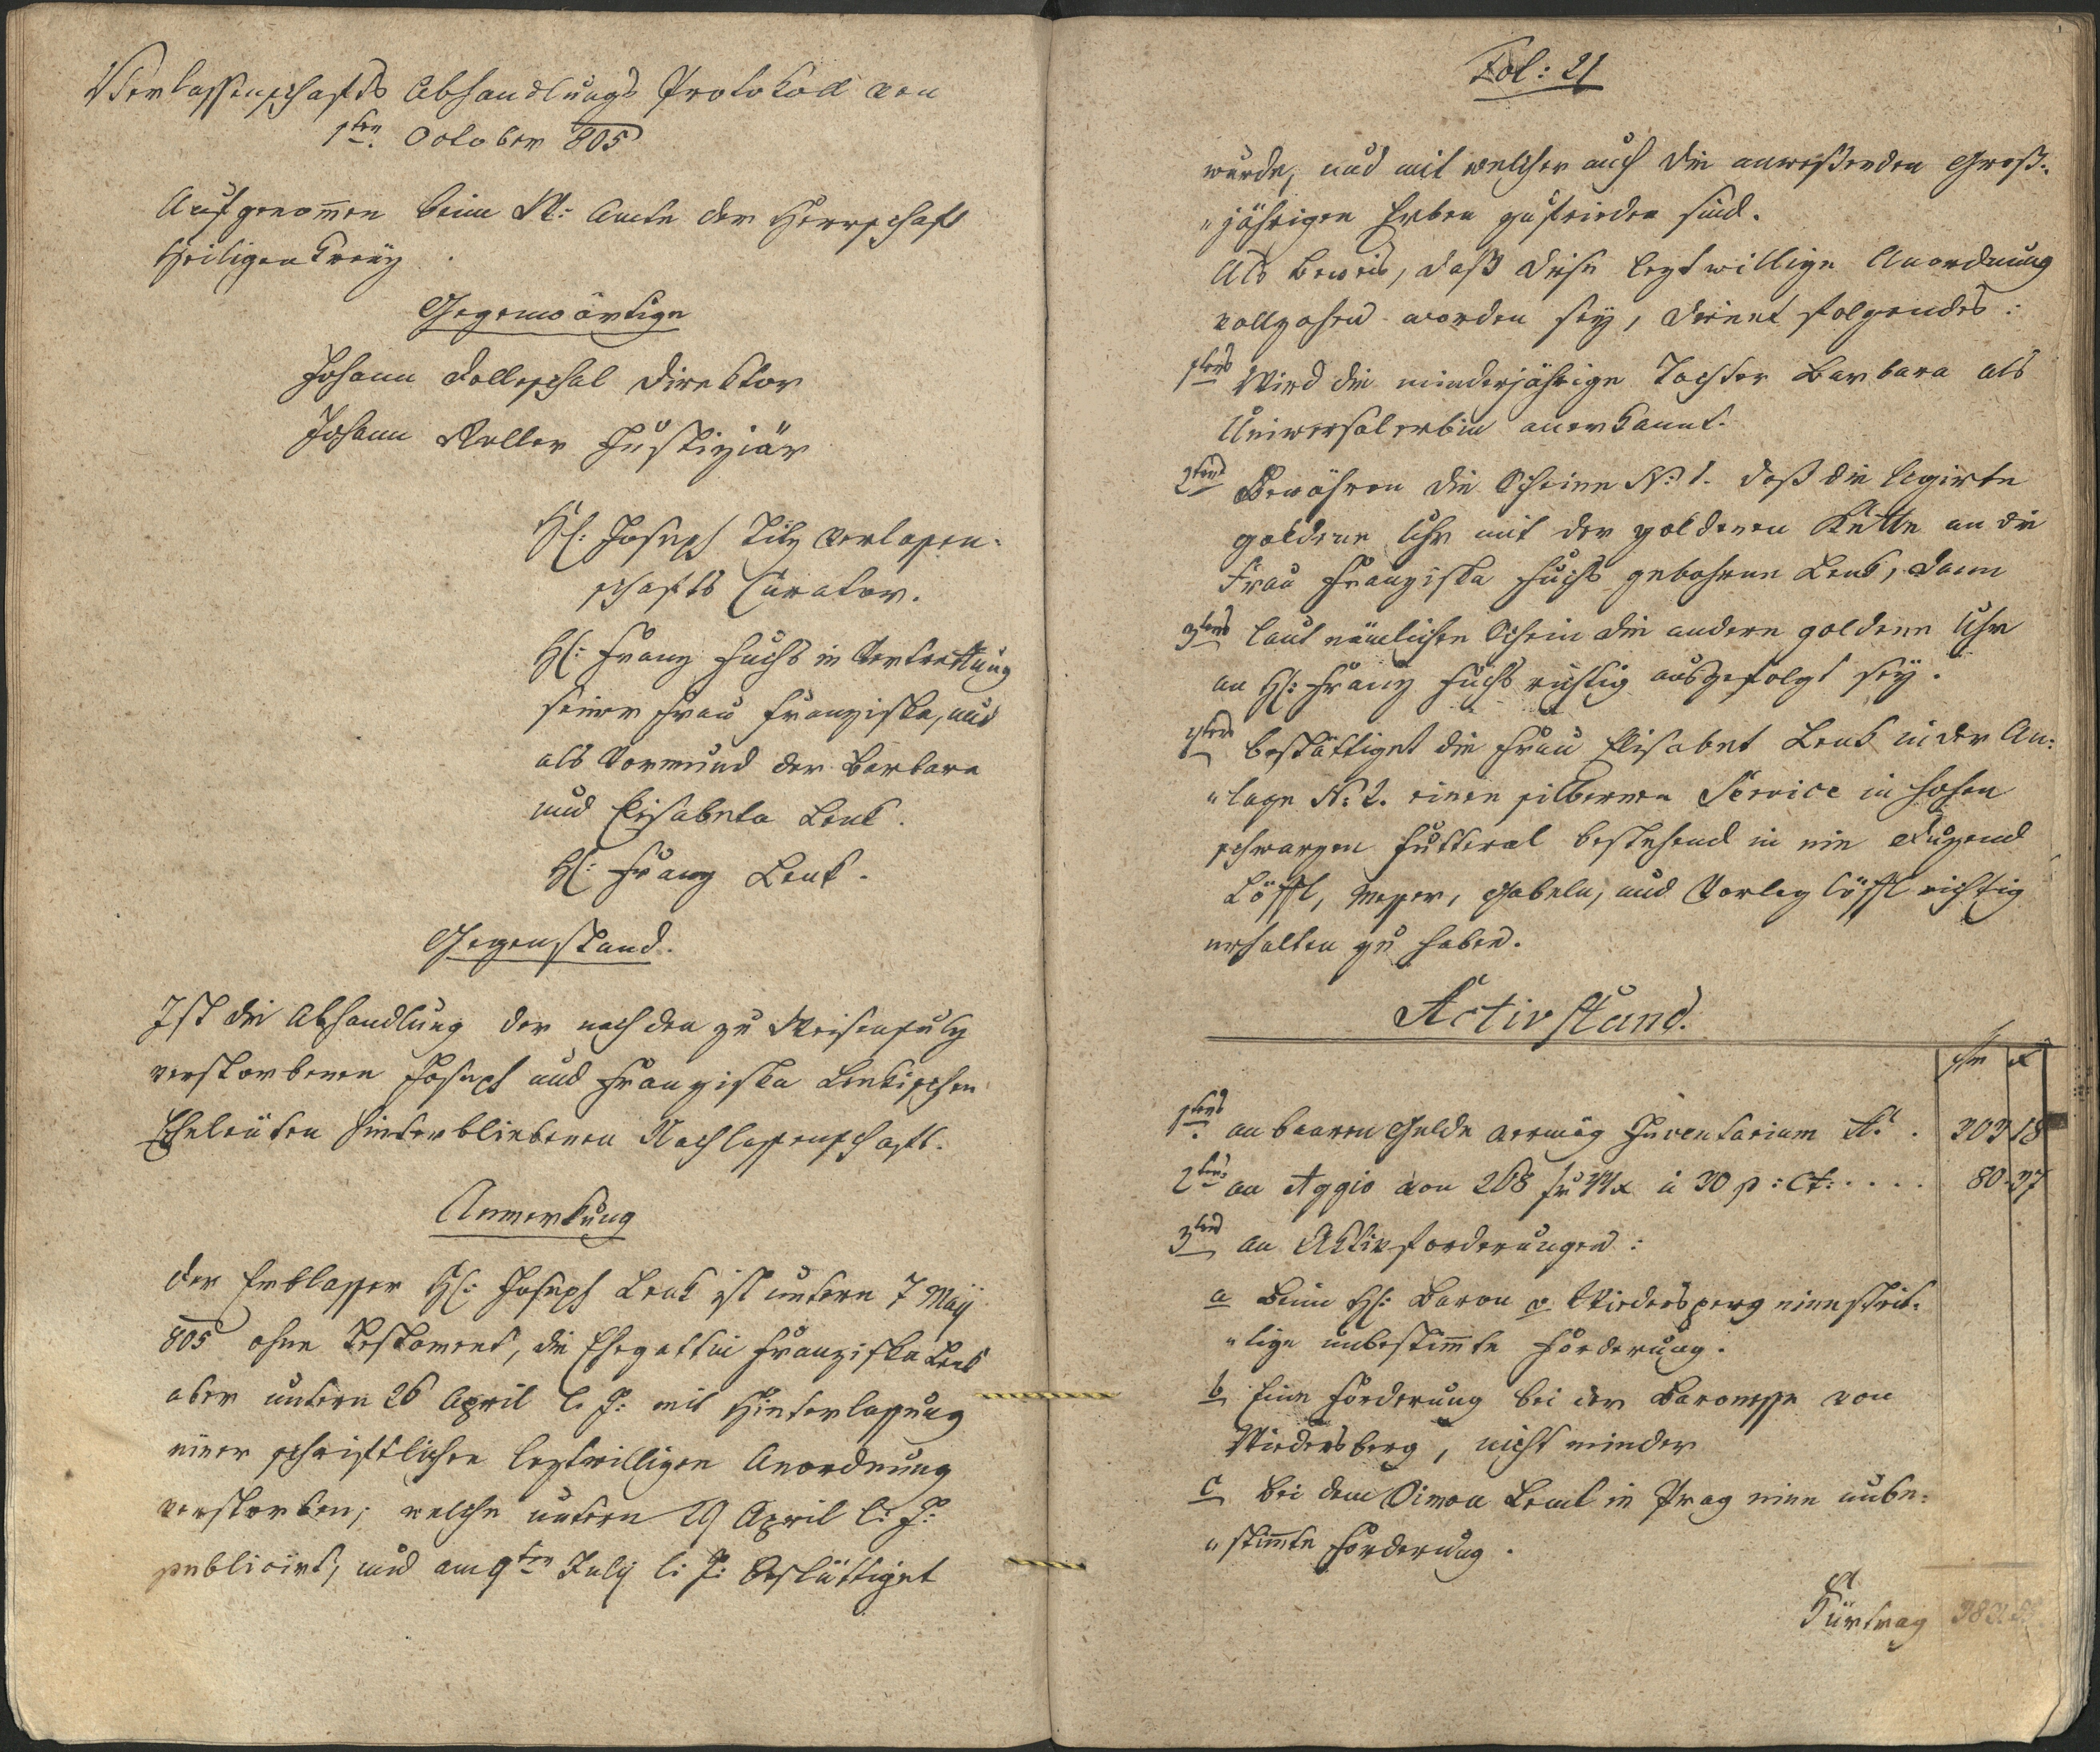 Verlassenschafts Abhandlungs Protokoll von
1ten October 805
Aufgenom̅en beim Amte der Herrschaft
Heiligenkreuz
Gegenwärtige
Johann Dolleschal Direktor
Johann Keller Justiziär
H: Joseph Tilz Verlassen-
schafts Curator.
H: Franz Fuchs in Vertrettung
seiner Frau Franziska, und
als Vormund der Barbara
und Elisabeta Lenk.
H: Franz Lenk.
Gegenstand.
Ist die Abhandlung der nach den zu Weisensulz
verstorbenen Joseph und Franziska Lenkischen
Eheleüten hinterbliebenen Nachlassenschaft.
Anmerkung
Der Erblasser H: Joseph Lenk ist untern 7 Maij
805 ohne Testament, die Ehegattin Franziska Lenk
aber untern 26 April l. J: mit Hinterlassung
einer schriftlichen leztwilligen Anordnung
verstorben; welche untern 29 April l: J:
publicirt, und am 9ten July l: J: bestättiget
Fol: 21
wurde, und mit welcher auch die anwesenden Groß-
"jährigen Erben zufrieden sind.
Als Beweis, daß diese leztwillige Anordnung
vollzohen worden seÿ, dienet folgendes:
1tens Wird die minderjährige Tochter Barbara als
Universalerbin anerkannt.
2tens Bewähren die Scheine N: 1. daß die legirte
goldene Uhr mit der goldenen Kette an die
Frau Franziska Fuchs gebohrne Lenk, dann
3tens laut nämlichen Schein die andere goldene Uhr
an H: Franz Fuchs richtig ausgefolgt seÿ.
4tens bestättiget die Frau Elisabet Lenk in der An-
"lage N: 2. einen silbernen Service in hohen
schwarzen Futteral bestehend in ein Duzend
Löffl, Messer, Gabeln, und Vorleg löffl richtig
erhalten zu haben.
Activstand.
fr x
1tens an baaren Gelde vermög Inventarium A: . 303 18
2tens an Aggio von 268 fr 44 x à 30 p: Ct: . . . . 80 37
3tens an Aktivforderungen:
a Beim H: Baron v. Wiedersperg eine strit-
"tige unbestim̅te Forderung.
b Eine Forderung bei der Baronesse von
Wiedersberg, nicht minder
c Bei dem Simon Lenk in Prag eine unbe-
"stim̅te Forderung.
Fürtrag